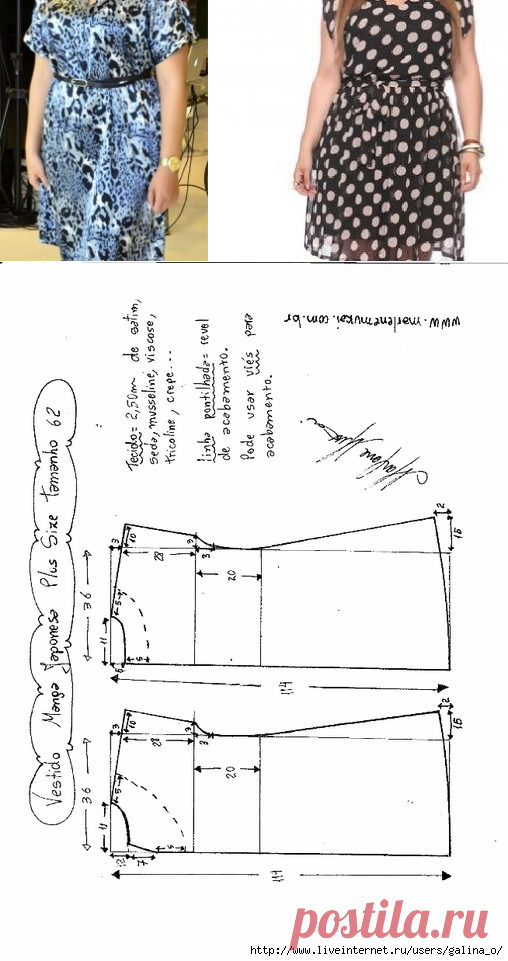 Vestido Manga Japonesa Plus Size tamanho 62
Tecido= 2,50m de cetim,
seda, musseline, viscose,
tricoline, crepe...
linha pontilhada= revel
de acabamento.
Pode usar viés para
acabamento.
www.marlenemukai.com.br
36
3
10
28
3
3
20
2
15
11
5
5
114
36
3
10
28
3
3
20
2
15
11
5
12
7
5
114
postila.ru
http://www.liveinternet.ru/users/galina_o/